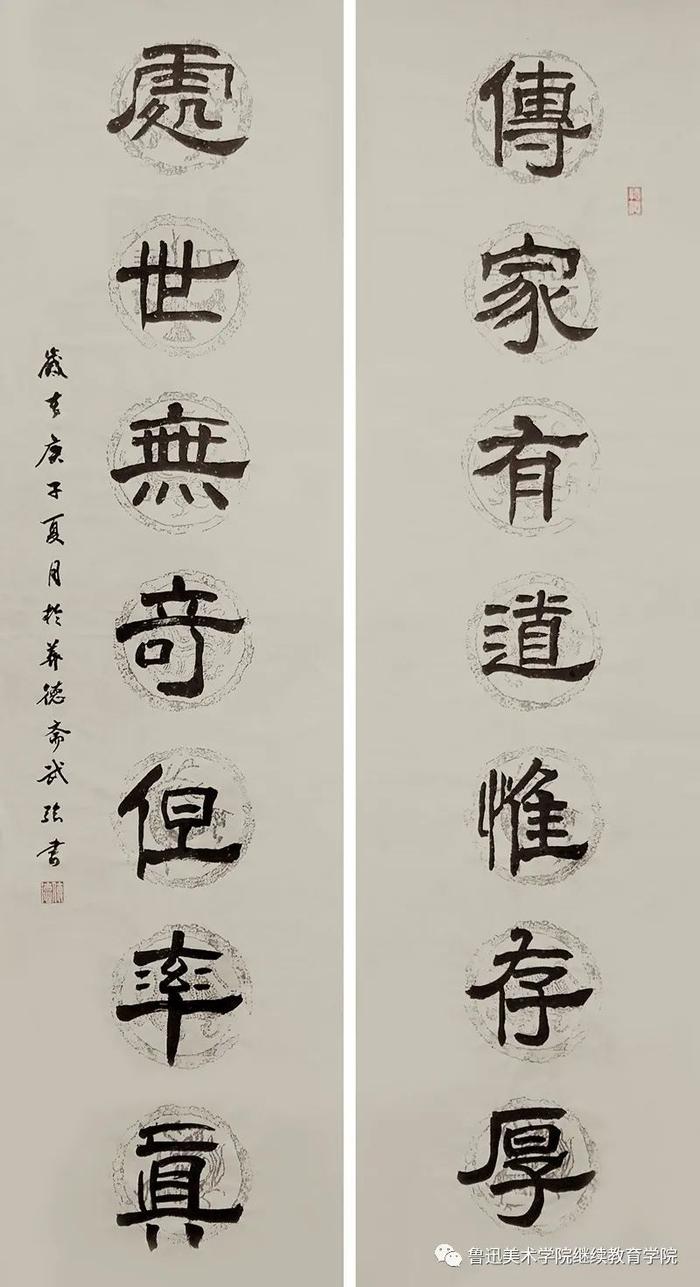 傳家有道惟存厚
處世無奇但率真
歲在庚子夏月於莽德齋武强書
鲁迅美术学院继续教育学院